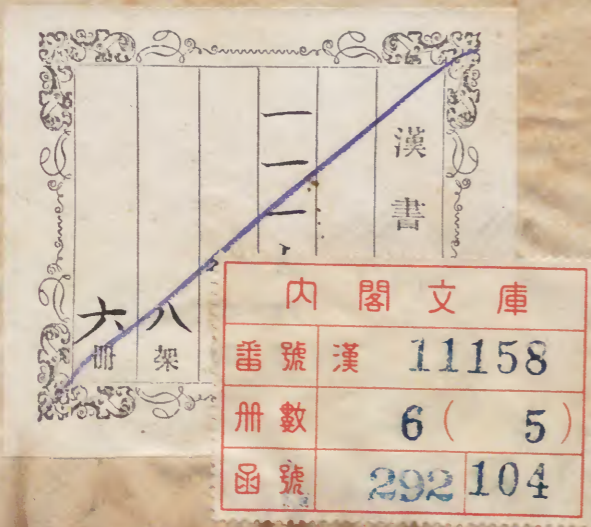 漢書
一一一
八架
六冊
內閣文庫
番號 漢 11158
冊數 6 ( 5 )
函號 292 104